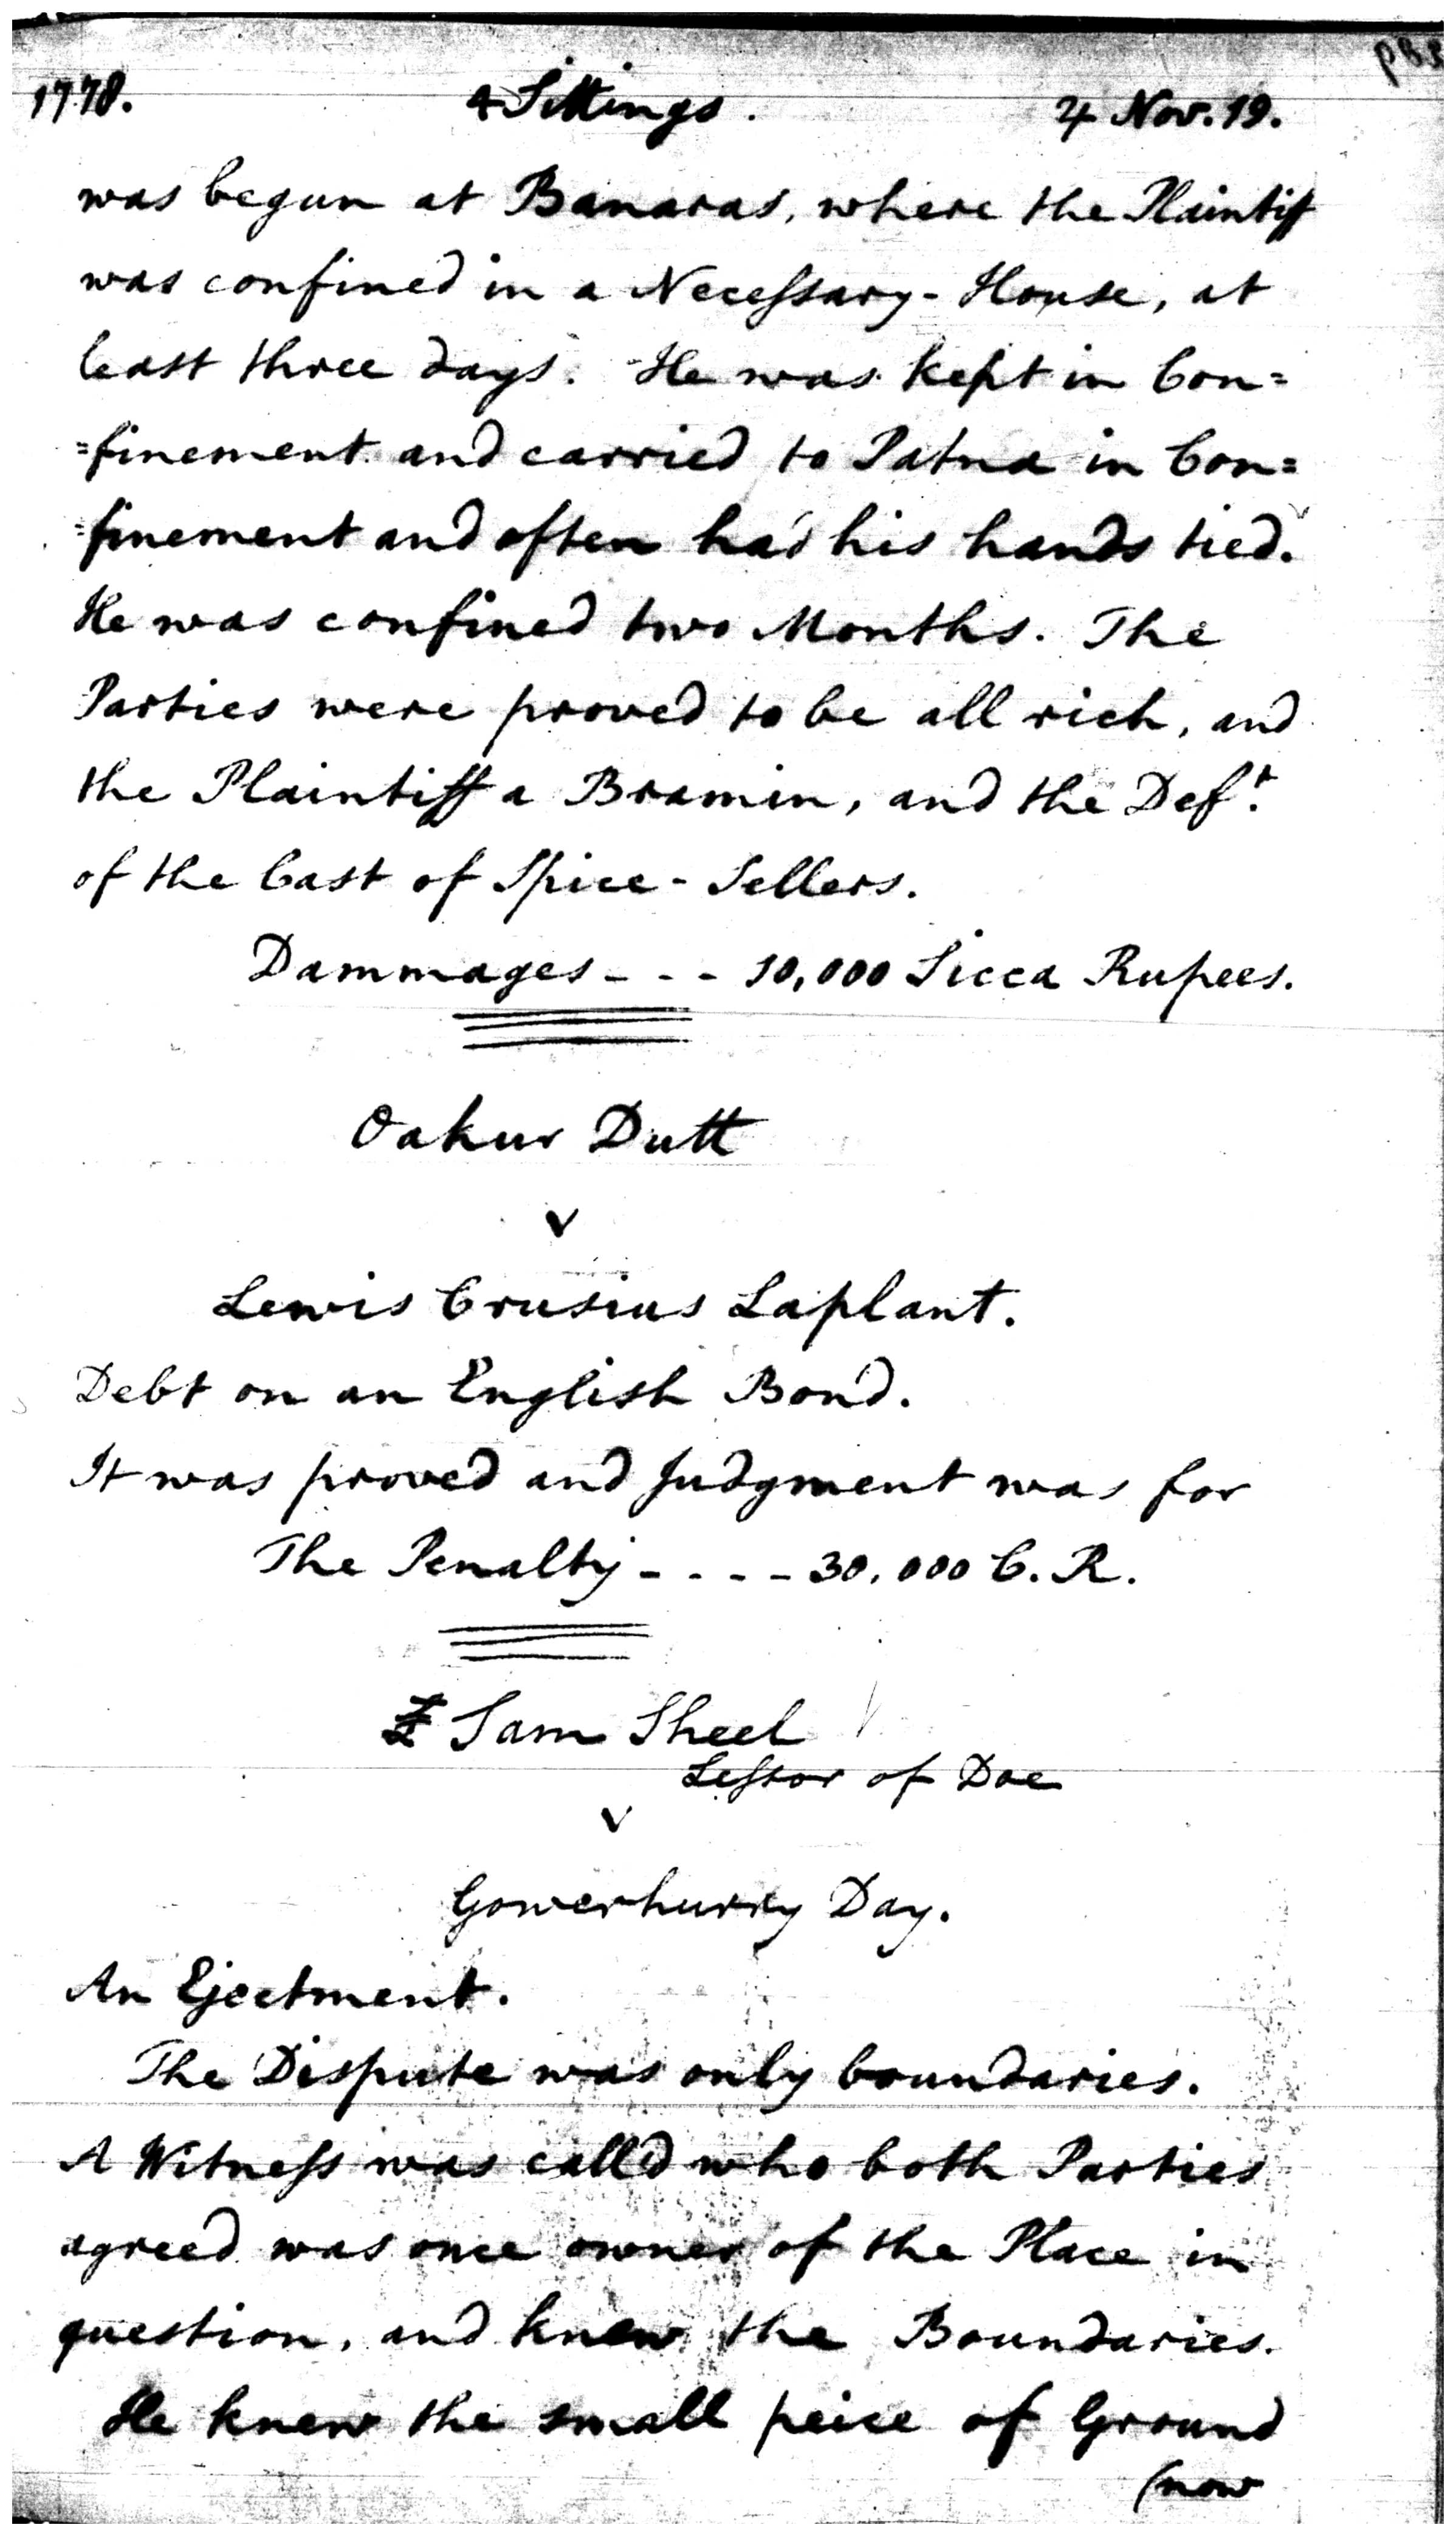 1778. 4 Sittings. 4 Nov. 19.
was begun at Banaras, where the Plaintiff
was confined in a Necessary-House, at
least three days. He was kept in Con=
=finement and carried to Patna in Con=
=finement and often had his hands tied.
He was confined two Months. The
Parties were proved to be all rich, and
the Plaintiff a Bramin, and the Deft.
of the Cast of Spice-Sellers.
Dammages - - - 10,000 Sicca Rupees.
Oakur Dutt
v
Lewis Crusius Laplant.
Debt on an English Bond.
It was proved and Judgment was for
The Penalty - - - - 30,000 C. R.
Sam Sheel
Lessor of Doe
v
Gowerhurry Day.
An Ejectment.
The Dispute was only boundaries.
A Witness was calld who both Parties
agreed was once owner of the Place in
question, and knew the Boundaries.
He knew the small peice of Ground
(now